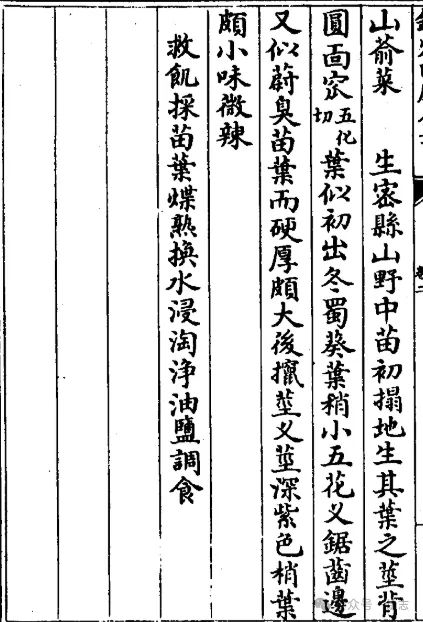 山萮菜　生密縣山野中苗初搨地生其葉之莖背
圓面窊五化切葉似初出冬蜀葵葉稍小五花叉鋸齒邊
又似蔚臭苗葉而硬厚頗大後攛莖叉莖深紫色梢葉
頗小味微辣
救飢採苗葉煠熟換水浸淘浄油鹽調食